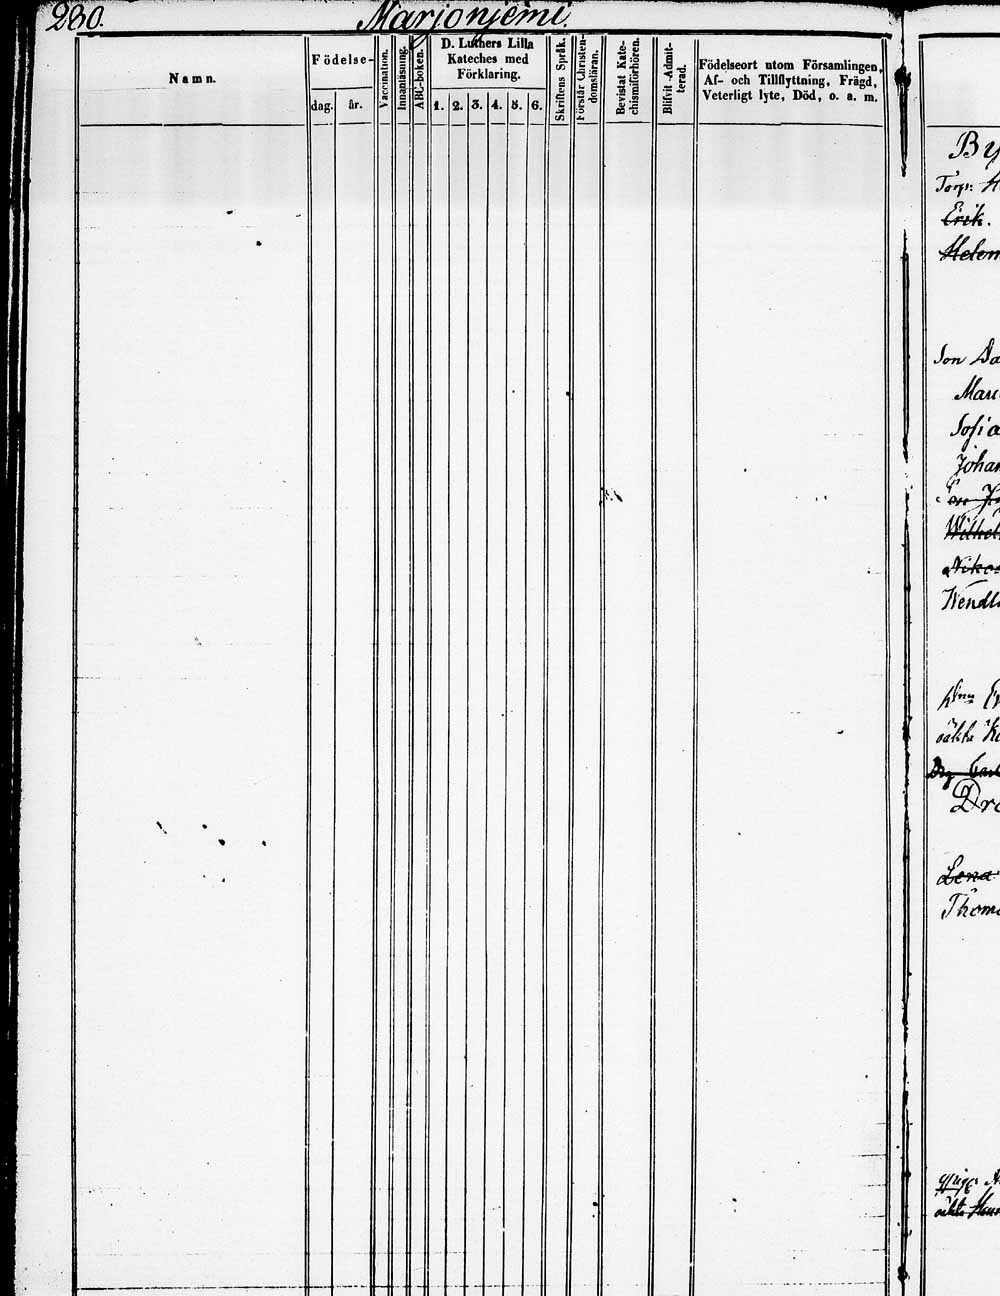 230. Marjonjemi.
Namn.
Födelse-
dag. år.
Vaccination.
Innanläsning.
ABC-boken.
D. Luthers Lilla
Kateches med
Förklaring.
1. 2. 3. 4. 5. 6.
Skriftens Språk.
Förstår Christen-
domsläran.
Bevistat Kate-
chismiförhören.
Blifvit Admit-
terad.
Födelseort utom Församlingen,
Af- och Tillflyttning, Frägd,
Veterligt lyte, Död, o. a. m.
By
Torp:
Erik.
Helen
Son Da
Mari
Sofia
Johan
Wilhel
Nikod
Wendl
Dre
Lena
Thoma